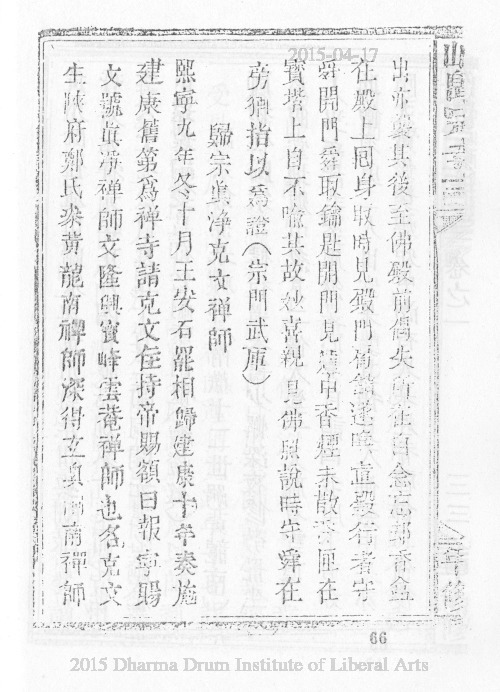 2015-04-17
出亦襲其後至佛殿前偶失所在自念忘郭香盒
在殿上回身取時見殿門扃鑰遂喚直殿行者守
舜開門舜取鑰匙開門見爐中香煙未散香匣在
寶塔上自不喻其故妙喜親見佛照說時守舜在
旁猶指以為證(宗門武庫)
歸宗真淨克文禪師
熙寧九年冬十月王安石罷相歸建康十年奏施
建康舊第為禪寺請克文住持帝賜額曰報寧賜
文號真淨禪師文隆興寶峰雲菴禪師也名克文
生陝府鄭氏參黃龍南禪師深得玄真南禪師
66
2015 Dharma Drum Institute of Liberal Arts